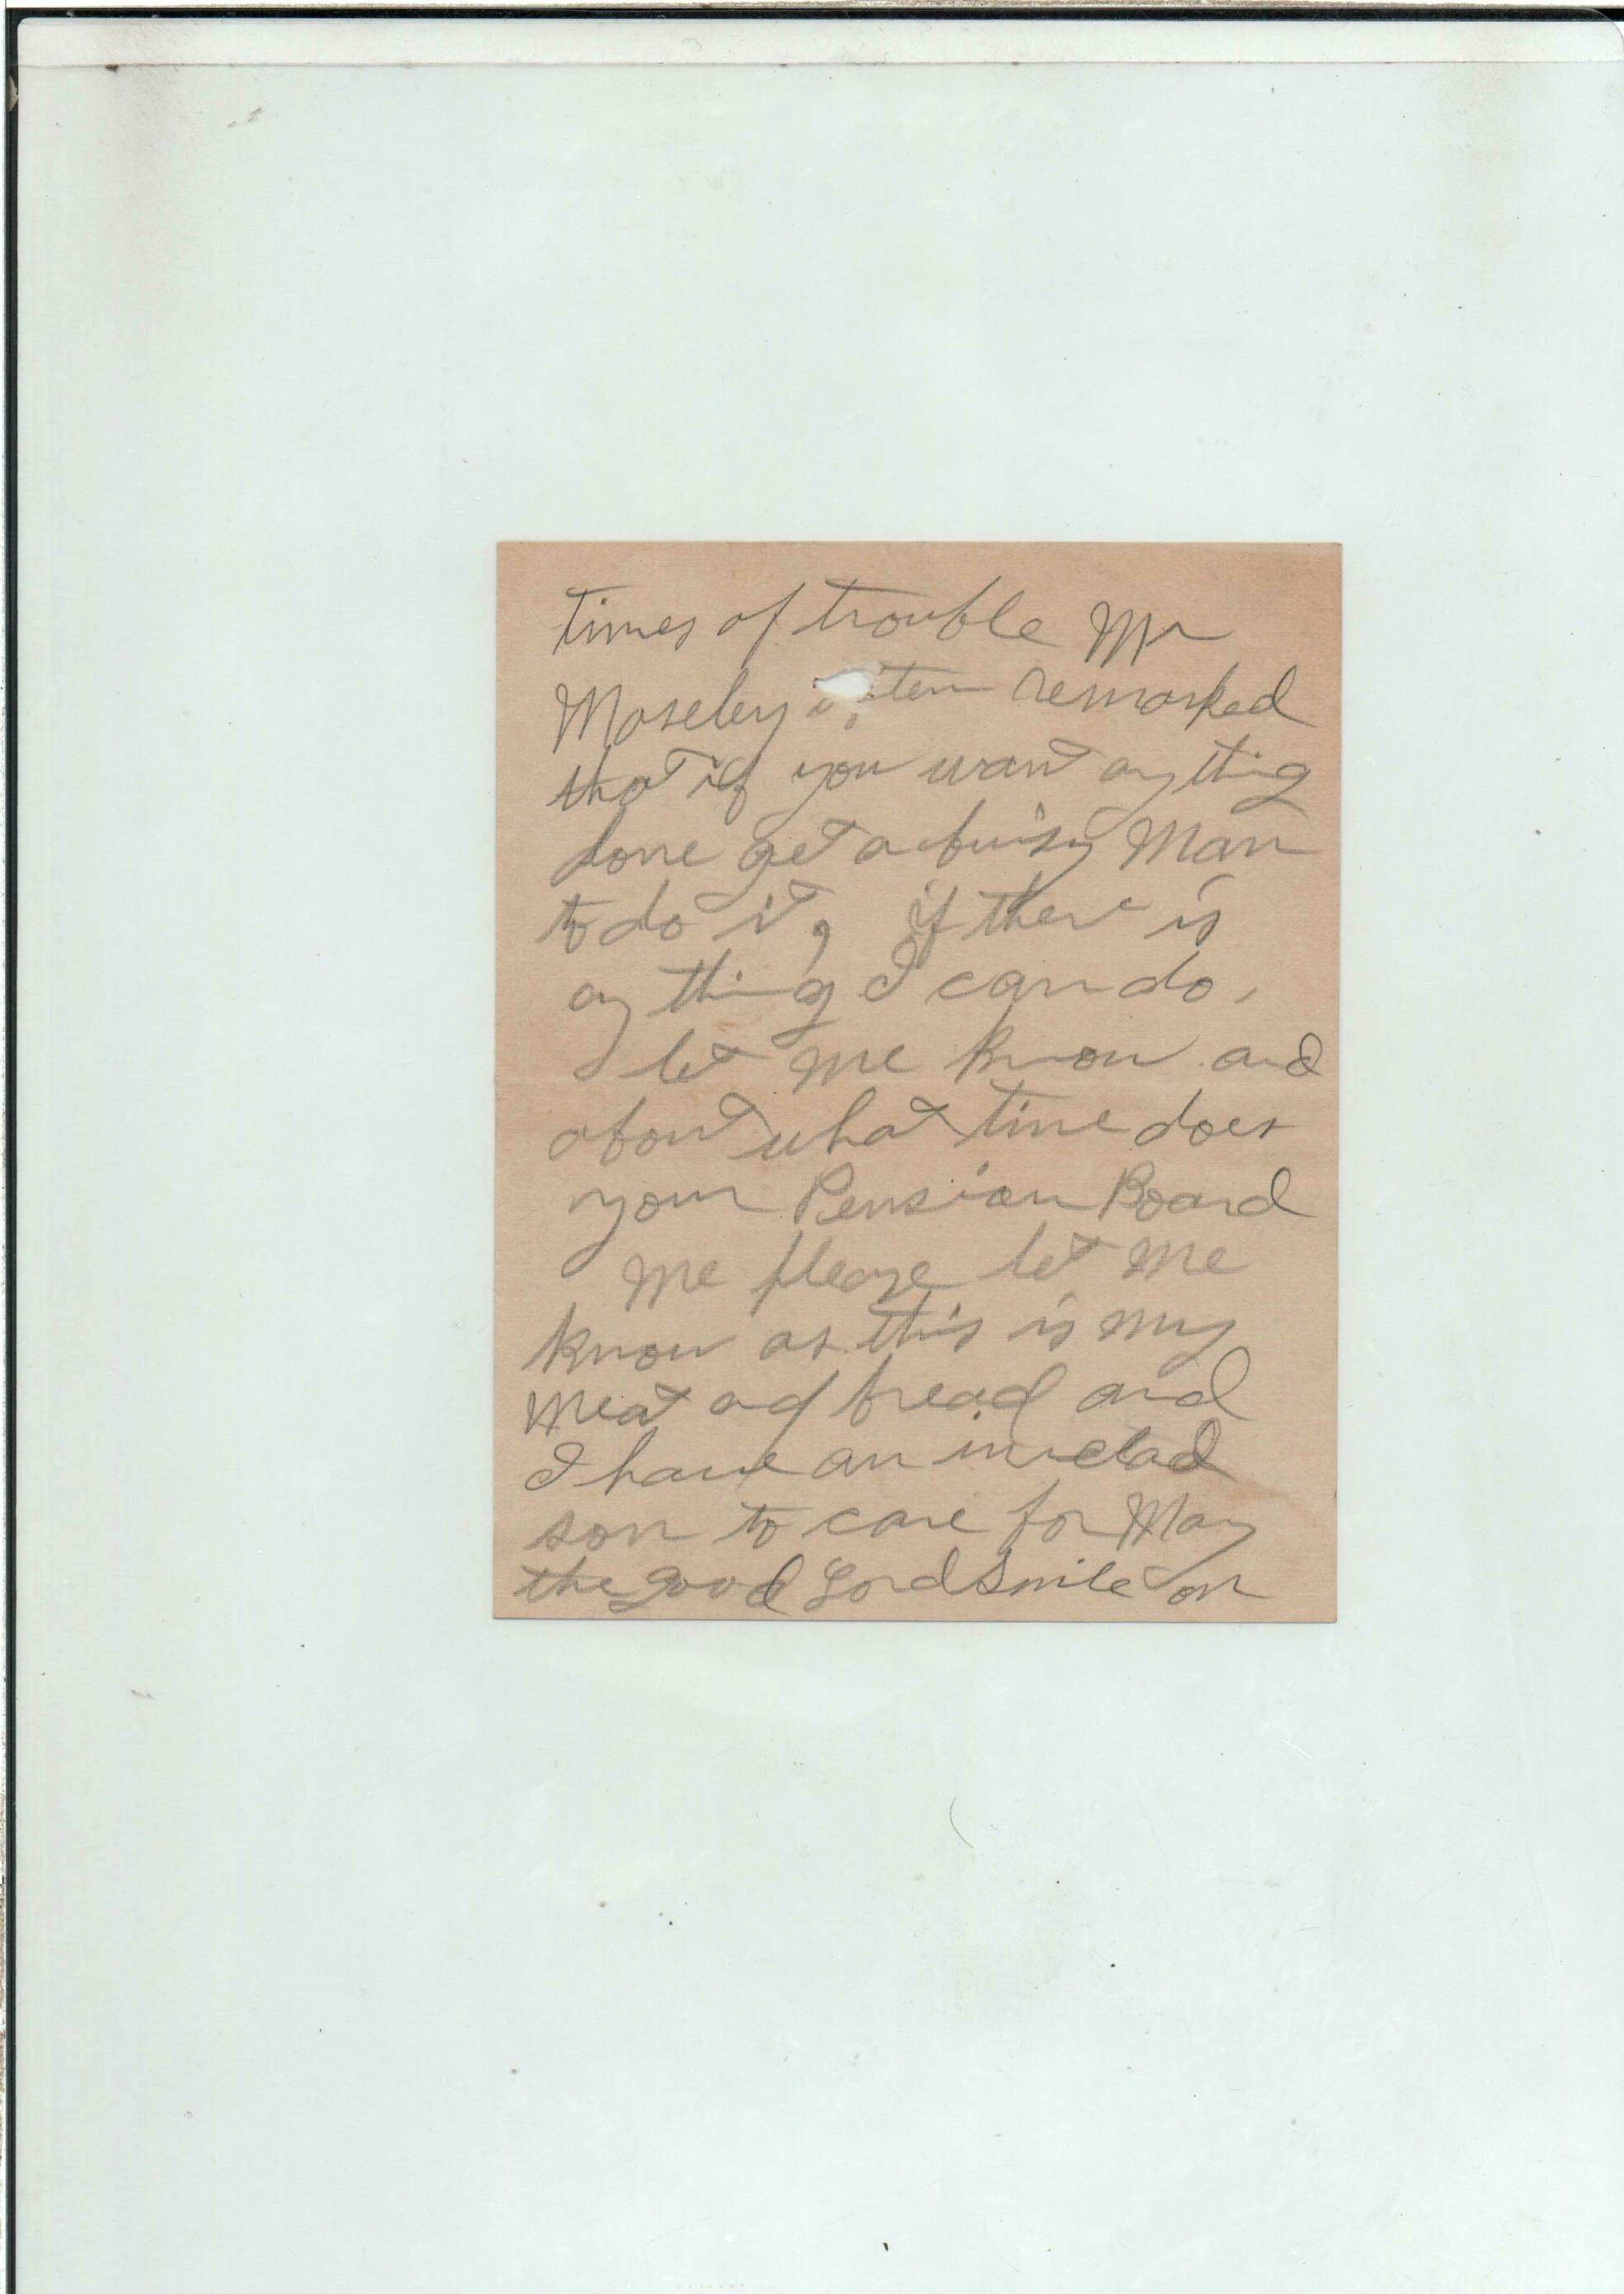 times of trouble Mr
Moseley often remarked
that if you want anything
done get a buisy Man
to do it, if there is
any thing I can do,
let me know and
about what time does
your Pension Board
me please let me
know as this is my
meat and bread and
I have an invelad
son to care for May
the good Lord smile on